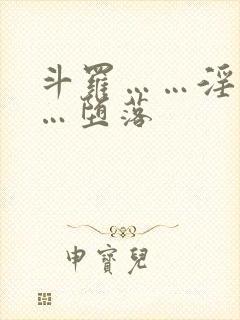 斗羅……淫
…堕落
申寶兒